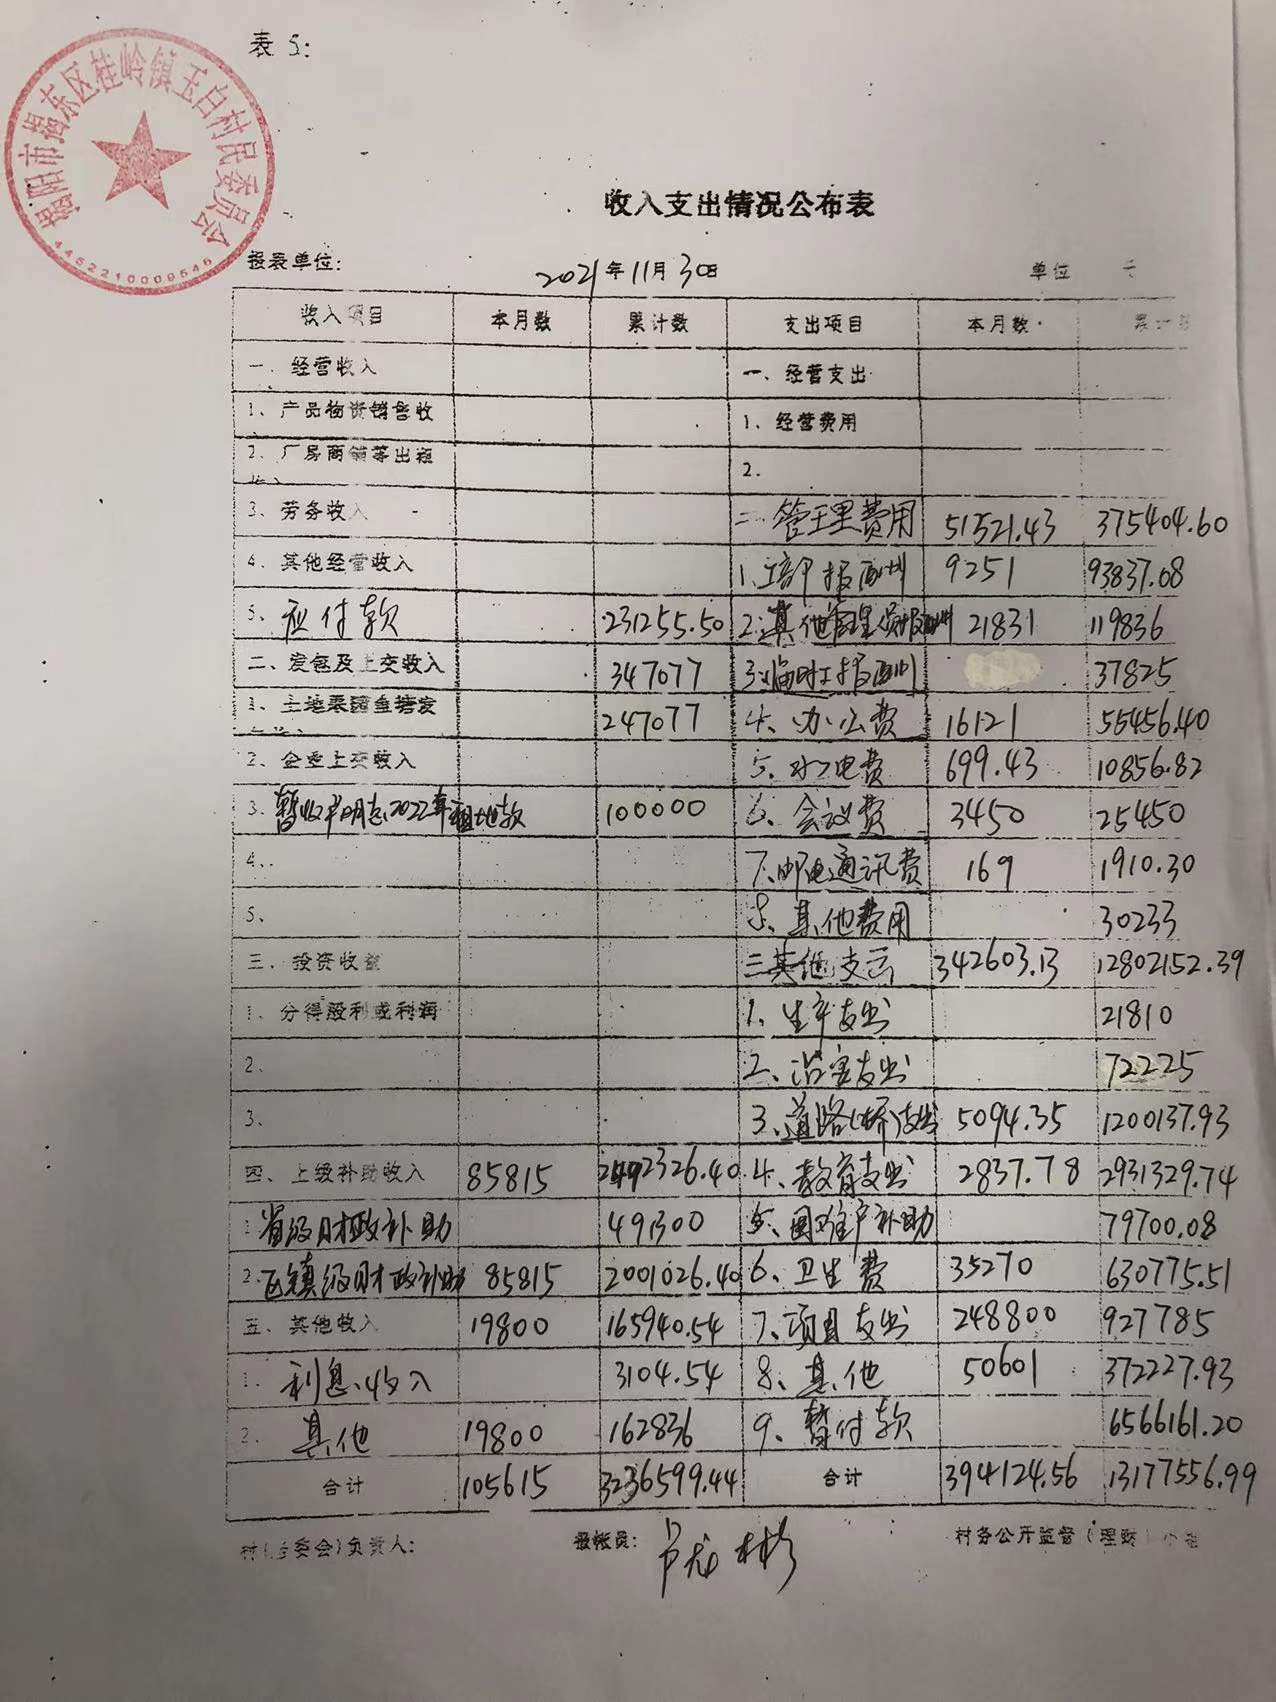 表 5:
揭阳市揭东区桂岭镇玉白村民委员会
4452210009545
收入支出情况公布表
报表单位:
2021年11月30日
单位
收入项目 本月数 累计数 支出项目 本月数 累计数
一、经营收入 一、经营支出
1、产品物资销售收 1、经营费用
2、厂房商铺等出租 2.
3、劳务收入 二、管理费用 51521.43 375404.60
4、其他经营收入 1、干部报酬 9251 93837.08
5、应付款 231255.50 2、其他管理员报酬 21831 119836
二、发包及上交收入 347077 3、临时工报酬 37825
1、土地果园鱼塘发 247077 4、办公费 16121 55456.40
2、企业上交收入 5、水电费 699.43 10856.82
3、暂收 明志2022年租地款 100000 6、会议费 3450 25450
4、 7、邮电通讯费 169 1910.30
5、 8、其他费用 30233
三、投资收益 三其他支出 342603.13 12802152.39
1、分得股利或利润 1、生产支出 21810
2、 2、治安支出 72225
3、 3、道路(桥)支出 5094.35 1200137.93
四、上级补助收入 85815 2492326.40 4、教育支出 2837.78 2931329.74
1、省级财政补助 491300 5、困难户补助 79700.08
2、区镇级财政补助 85815 2001026.40 6、卫生费 35270 630775.51
五、其他收入 19800 165940.54 7、项目支出 248800 927785
1、利息收入 3104.54 8、其他 50601 372227.93
2、其他 19800 162836 9、暂付款 6566161.20
合计 105615 3236599.44 合计 394124.56 13177556.99
村(居委会)负责人: 报账员: 卢龙彬 村务公开监督(理财)小组